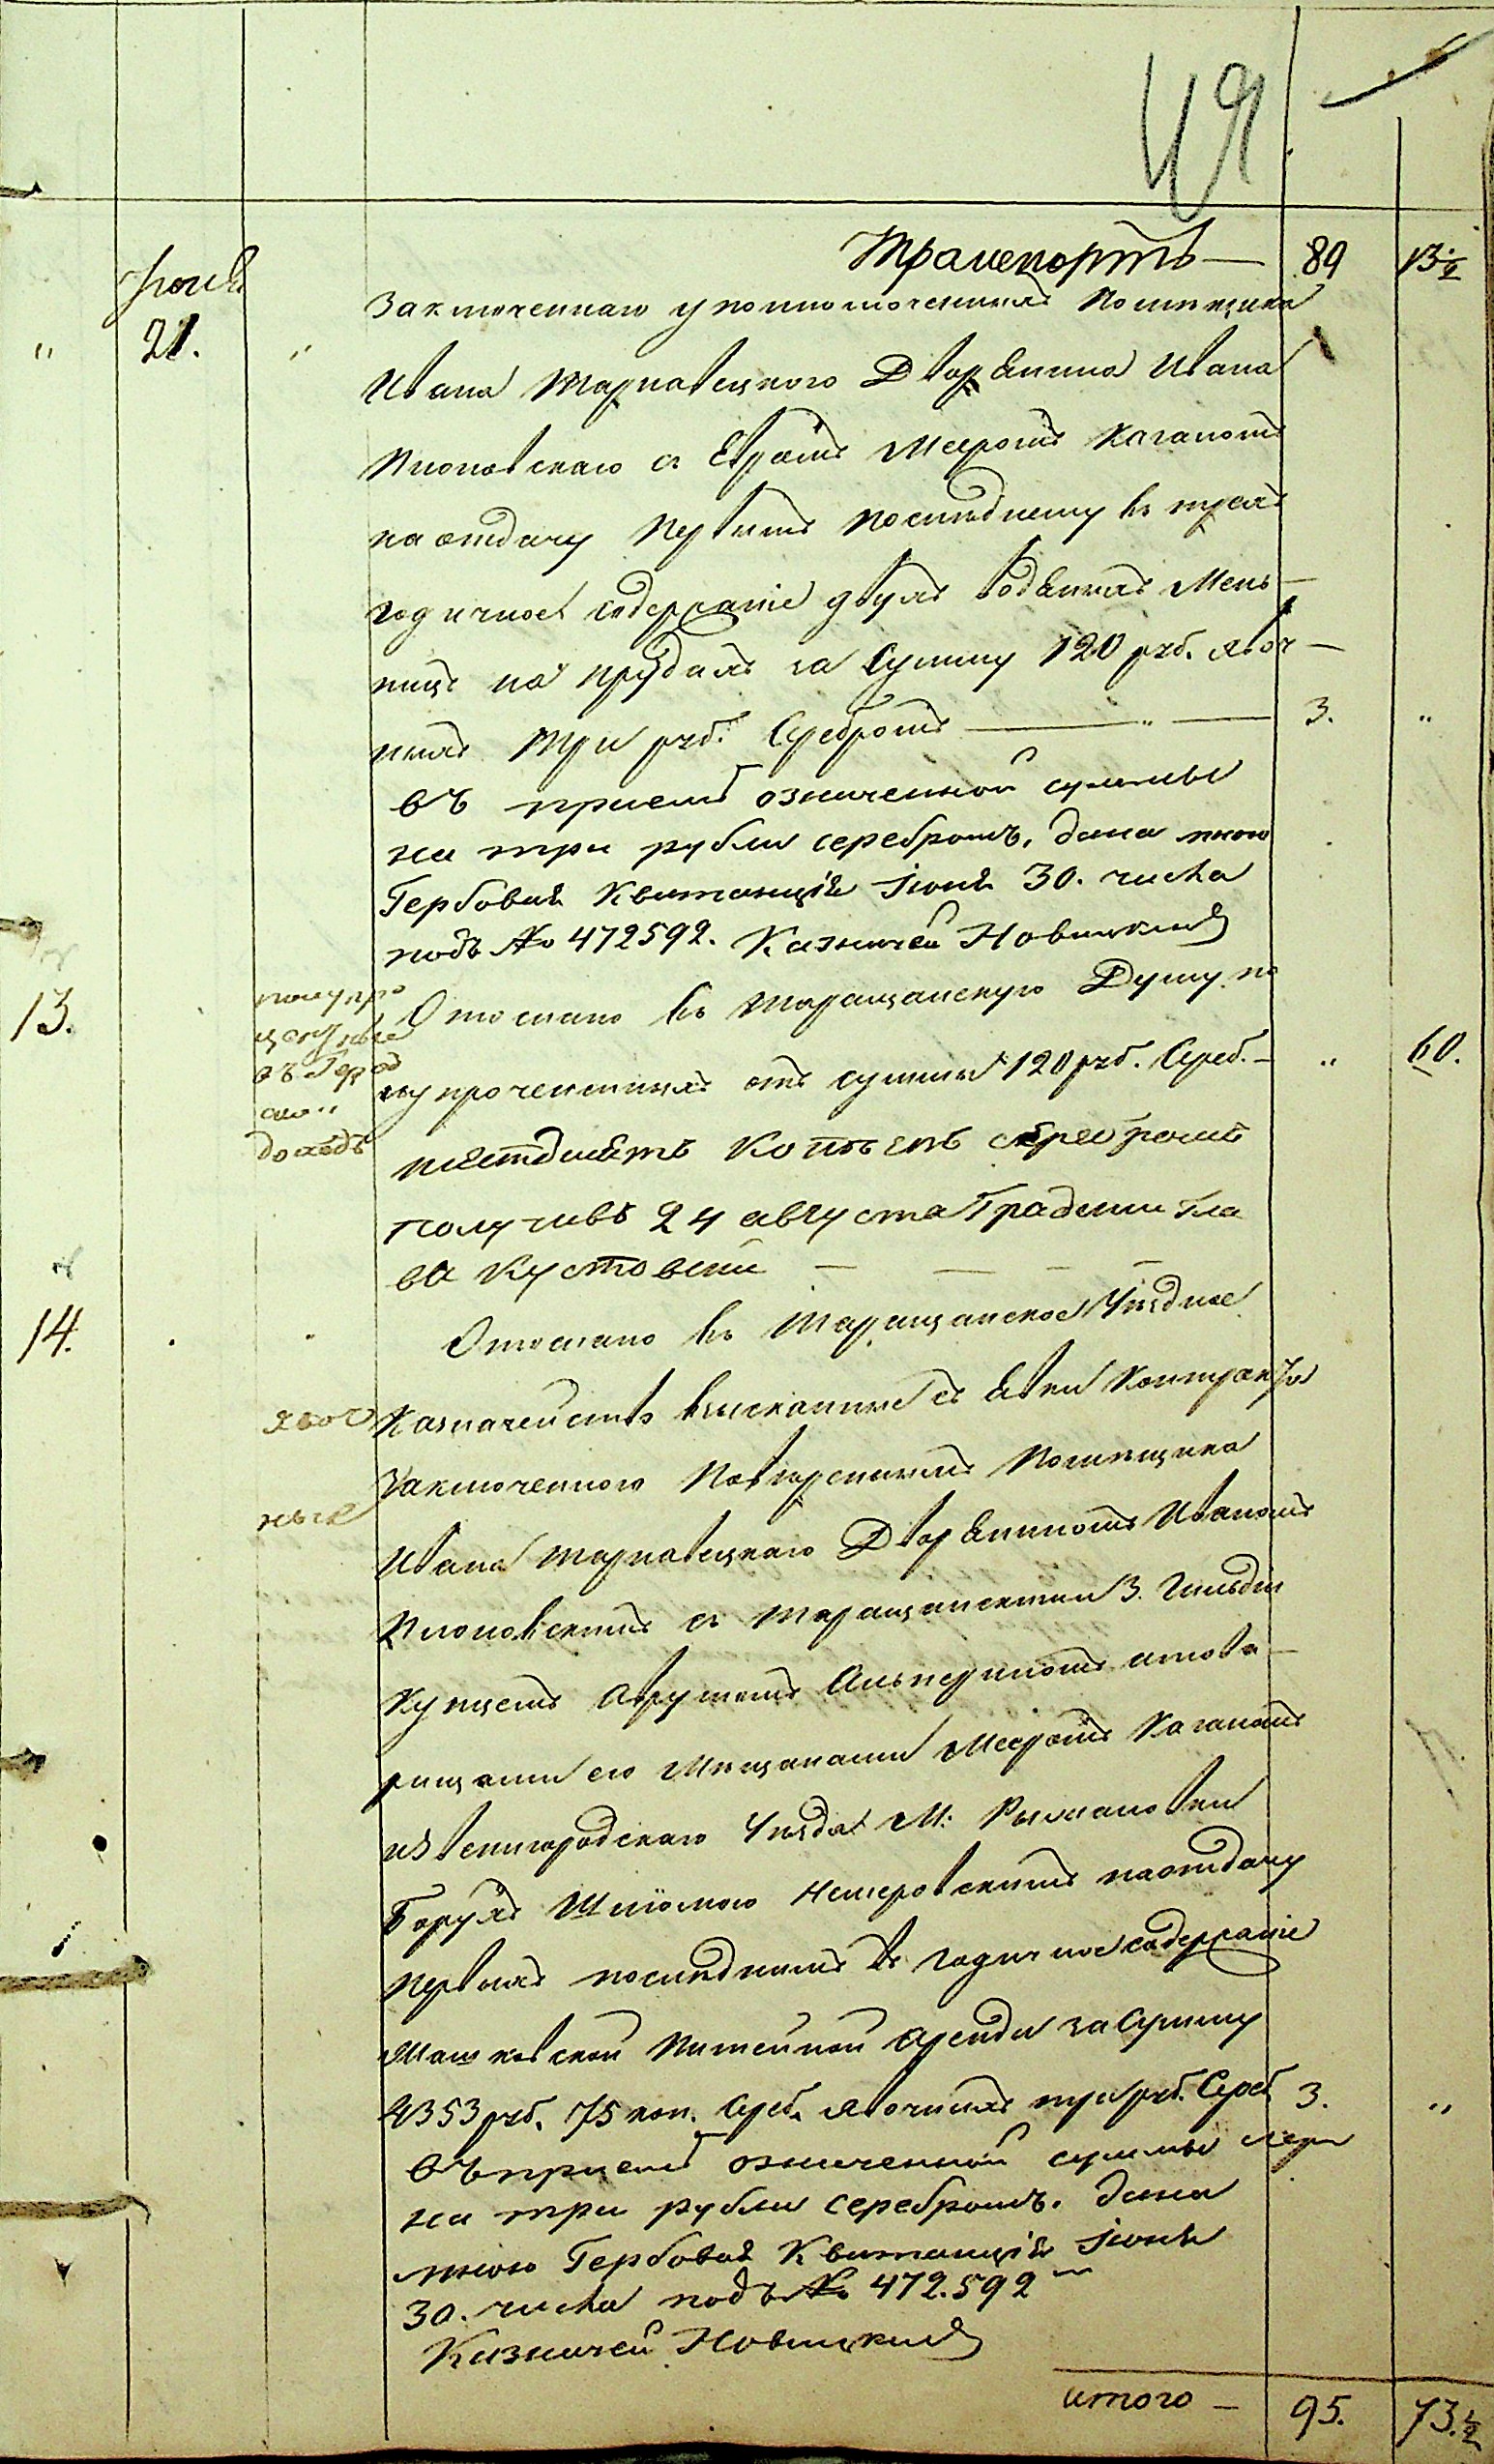 49
Транспортъ — 89 13 ½
Іюня
" 21. "
Заключеннаго уполномоченнымъ Помѣщика
Ивана Тарнавецкого Дворянина Ивана
Піоновскаго съ Евреемъ Мееромъ Каганомъ
на отдачу первымъ послѣднему въ трехъ
годичное содержаніе двухъ водяныхъ Мель-
ницъ на прудахъ за сумму 120 руб. явоч-
ныхъ три руб. Серебромъ — " — 3. "
въ приемѣ означенной суммы
на три рубли серебромъ, дана мною
Гербовая Квитанція Іюня 30. числа
подъ № 472592. Казначей Новицкий
13.
полупро
центные
въ Город
ской
доходъ
Отослано въ Таращанскую Думу по
лупроцентныхъ отъ суммы 120 руб. Сереб. — " 60.
шестдесятъ копѣекъ серебромъ
получивъ 24 августа Градский Гла
ва Кустовский — — — —
14. . .
Отослано въ Таращанское Уѣздное
явоч
ные
Казначейство взысканные съ явки Контракта
Заключенного повѣреннымъ Помѣщика
Ивана Тарнавецкаго Дворяниномъ Иваномъ
Піоновскимъ съ Таращанскими 3. Гильдіи
Купцемъ Аврумомъ Альперинымъ и това-
рищами его Мѣщанами Мееромъ Каганомъ
и Звенигородскаго Уѣзда М: Рыжановки
Борухъ Шліомою Немеровскимъ на отдачу
первымъ послѣднимъ въ годичное содержаніе
Машковской Питейной аренды за Сумму
4353 руб. 75 коп. Сереб. явочныхъ три руб. Сереб. 3. "
въ приемѣ означенной суммы сер
на три рубли серебромъ. дана
мною Гербовая Квитанція Іюня
30. числа подъ № 472.592
Казначей Новицкий
итого — 95. 73. ½